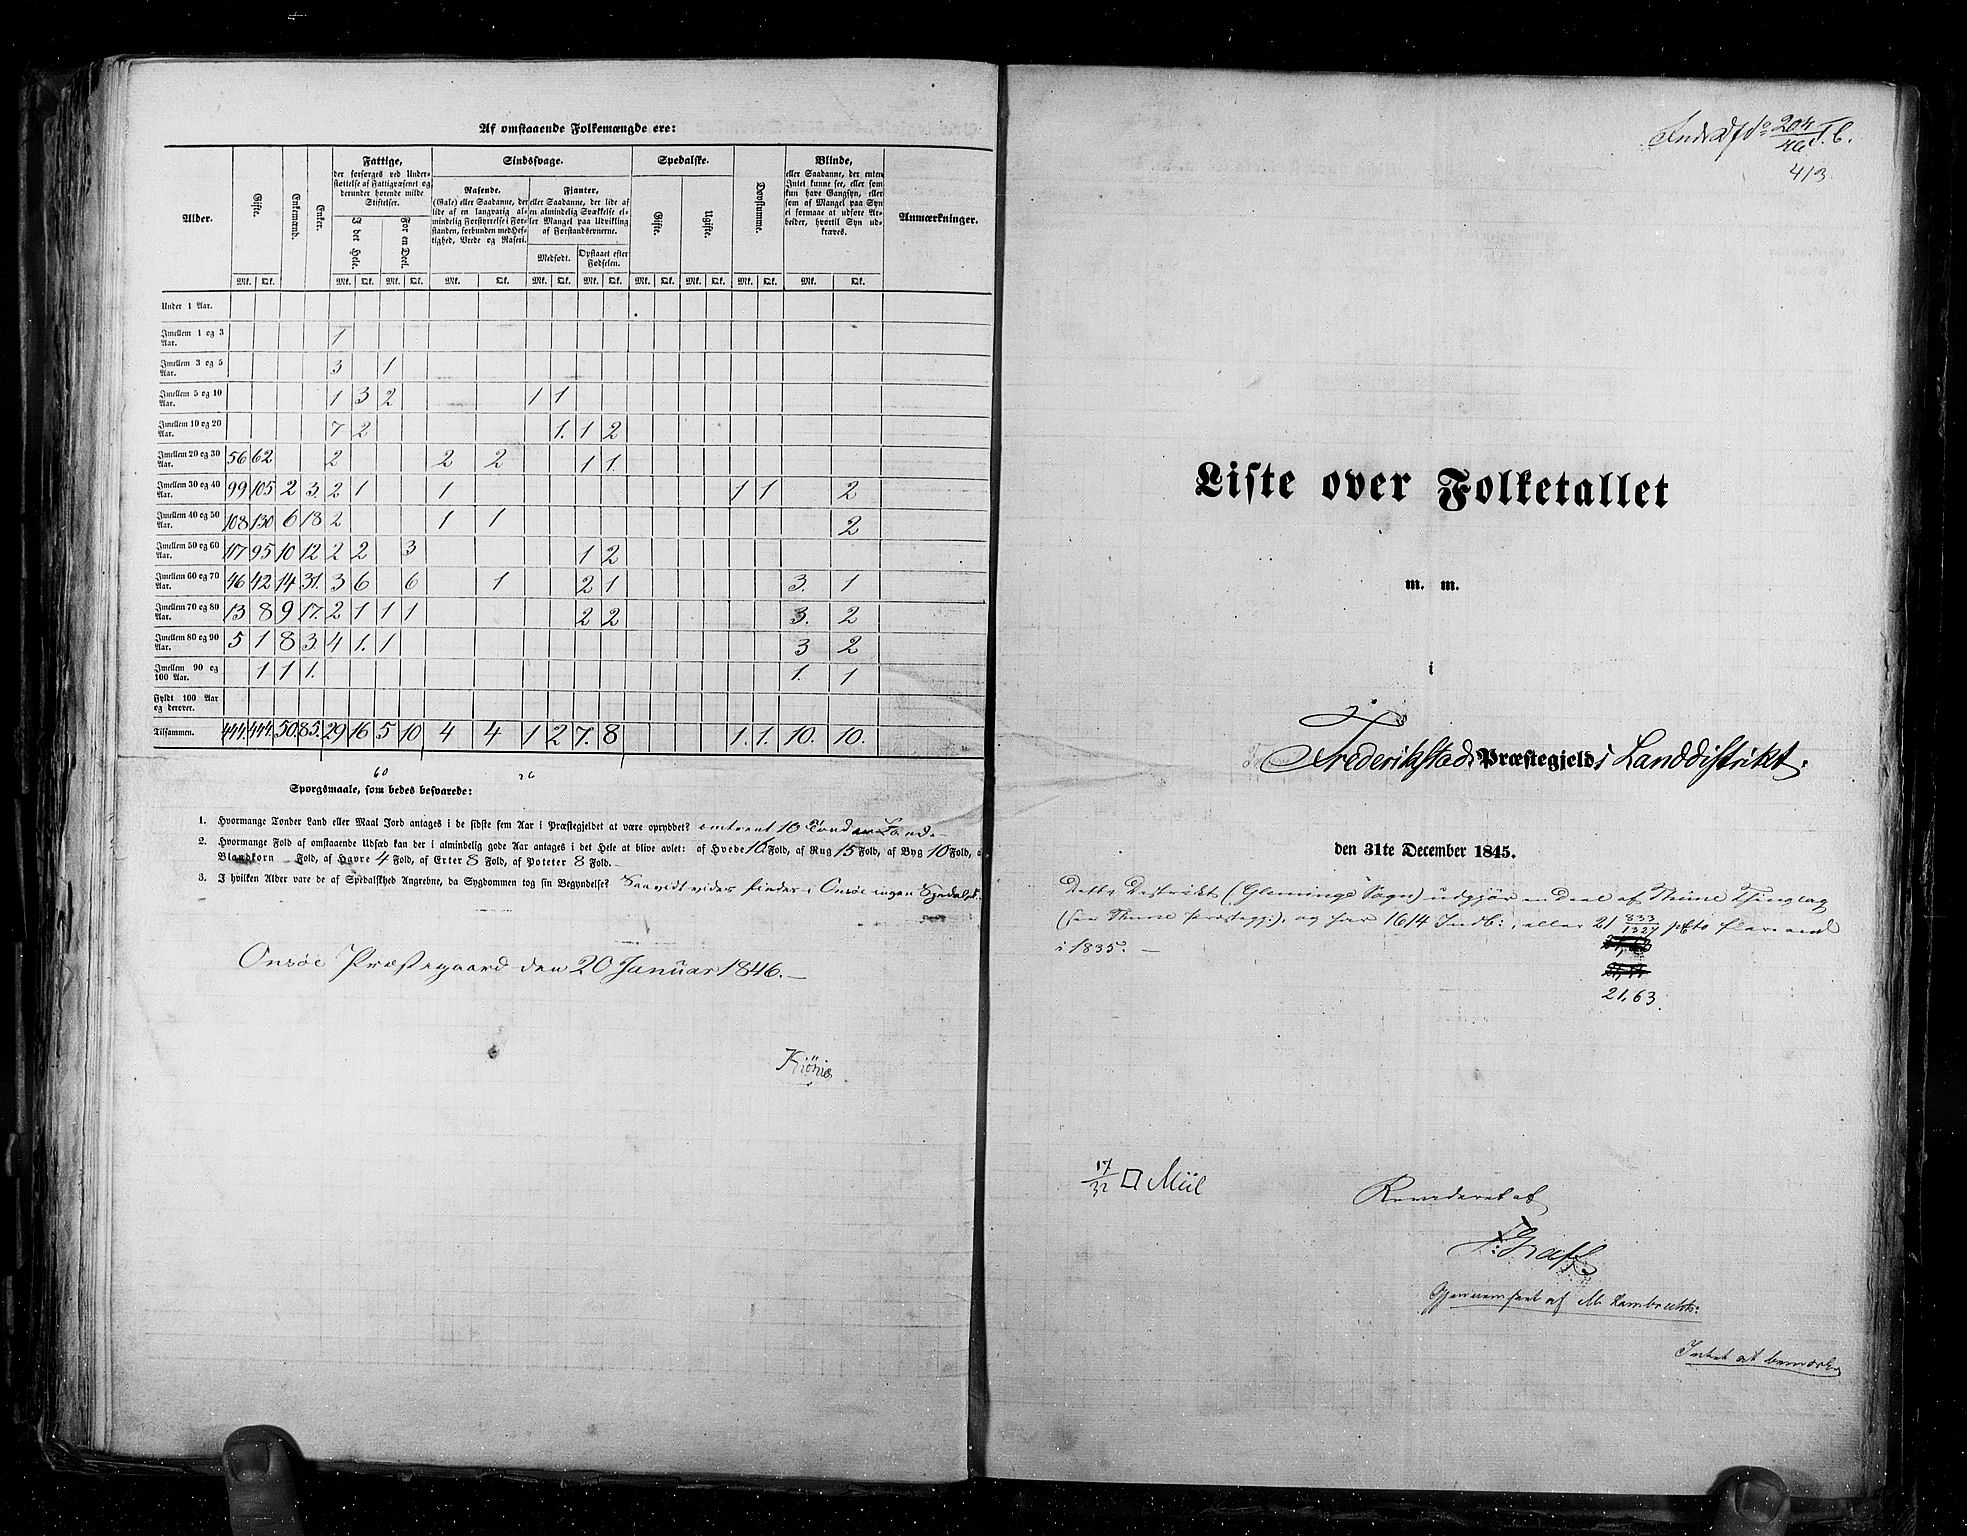 Af omstaaende Folkemængde ere:
Alder. Gifte. Enkemænd. Enker. Fattige, Sindssvage. Spedalske. Døvstumme. Blinde, Anmærkninger.
der forsørges ved Under-
støttelse af Fattigvæsenet og
derunder hørende milde
Stiftelser.
I det Hele. For en Deel.
Rasende.
(Gale) eller Saadanne, der
lide af en langvarig al-
mindelig Forstyrrelse i For-
standen, forbunden med Hef-
tighed, Vrede og Raseri.
Fjanter,
eller Saadanne, der lide af
en almindelig Svækkelse el-
ler Mangel paa Udvikling
af Forstandsevnerne.
Medfødt. Opstaaet efter
Fødselen.
Gifte. Ugifte.
eller Saadanne, der enten
Intet kunne see, eller som
kun have Gangsyn, eller
som af Mangel paa Syn
ei formaae at udføre Ar-
beider, hvortil Syn ud-
kræves.
Mk. Qk. Mk. Qk. Mk. Qk. Mk. Qk. Mk. Qk. Mk. Qk. Mk. Qk. Mk. Qk. Mk. Qk. Mk. Qk.
Under 1 Aar.
Imellem 1 og 3 Aar. 1
Imellem 3 og 5 Aar. 3 1
Imellem 5 og 10 Aar. 1 3 2 1 1
Imellem 10 og 20 Aar. 7 2 1. 1 2
Imellem 20 og 30 Aar. 56 62 2 2 2 1 1.
Imellem 30 og 40 Aar. 99 105 2 3. 2 1 1 1 1 2
Imellem 40 og 50 Aar. 108 130 6 18 2 1 1 2
Imellem 50 og 60 Aar. 117 95 10 12 2 2 3 1 2
Imellem 60 og 70 Aar. 46 42 14 31. 3 6 6 1 2 1 3. 1
Imellem 70 og 80 Aar. 13 8 9 17. 2 1 1 1 2 2 3. 2
Imellem 80 og 90 Aar. 5 1 8 3. 4 1. 1 3 2
Imellem 90 og 100 Aar. 1 1 1. 1. 1
Fyldt 100 Aar og derover.
Tilsammen. 444. 444. 50. 85. 29 16 5 10 4 4 1 2 7. 8 1. 1. 10. 10.
60
Sporgsmaale, som bedes besvarede:
1. Hvormange Tønder Land eller Maal Jord antages i de sidste fem Aar i Præstegjeldet at være opryddet? omtrent 10 Tønder Land.
2. Hvormange Fold af omstaaende Udsæd kan der i almindelig gode Aar antages i det Hele at blive avlet: af Hvede 16 Fold, af Rug 15 Fold, af Byg 10 Fold, a
Blandkorn Fold, af Havre 4 Fold, af Erter 8 Fold, af Poteter 8 Fold.
3. I hvilken Alder vare de af Spedalskhed Angrebne, da Sygdommen tog sin Begyndelse? Saavidt vides findes i Onsøe ingen Spedalsk.
Onsøe Præstegaard den 20 Januar 1846.
413.
Liste over Folketallet
m. m.
i
Frederikstads Præstegjelds Landdistrikt.
den 31te December 1845.
Dette Distrikt (Glemminge Sogn) udgjør en Deel af Thune Thinglag
(see Thune Præstegj:), og har 1614 Indb:, eller 21 833/1327 pCto flere end
i 1835. —
21,63
17/32 □ Miil
Revideret af
Gjennemseet af M. Lambrechts.
Intet at bemærke